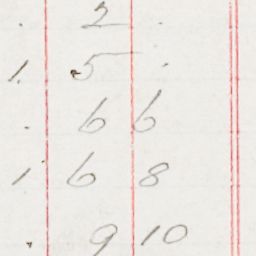 . 2 .
1. 5 .
. 6 6
1 6 8
. 9 10